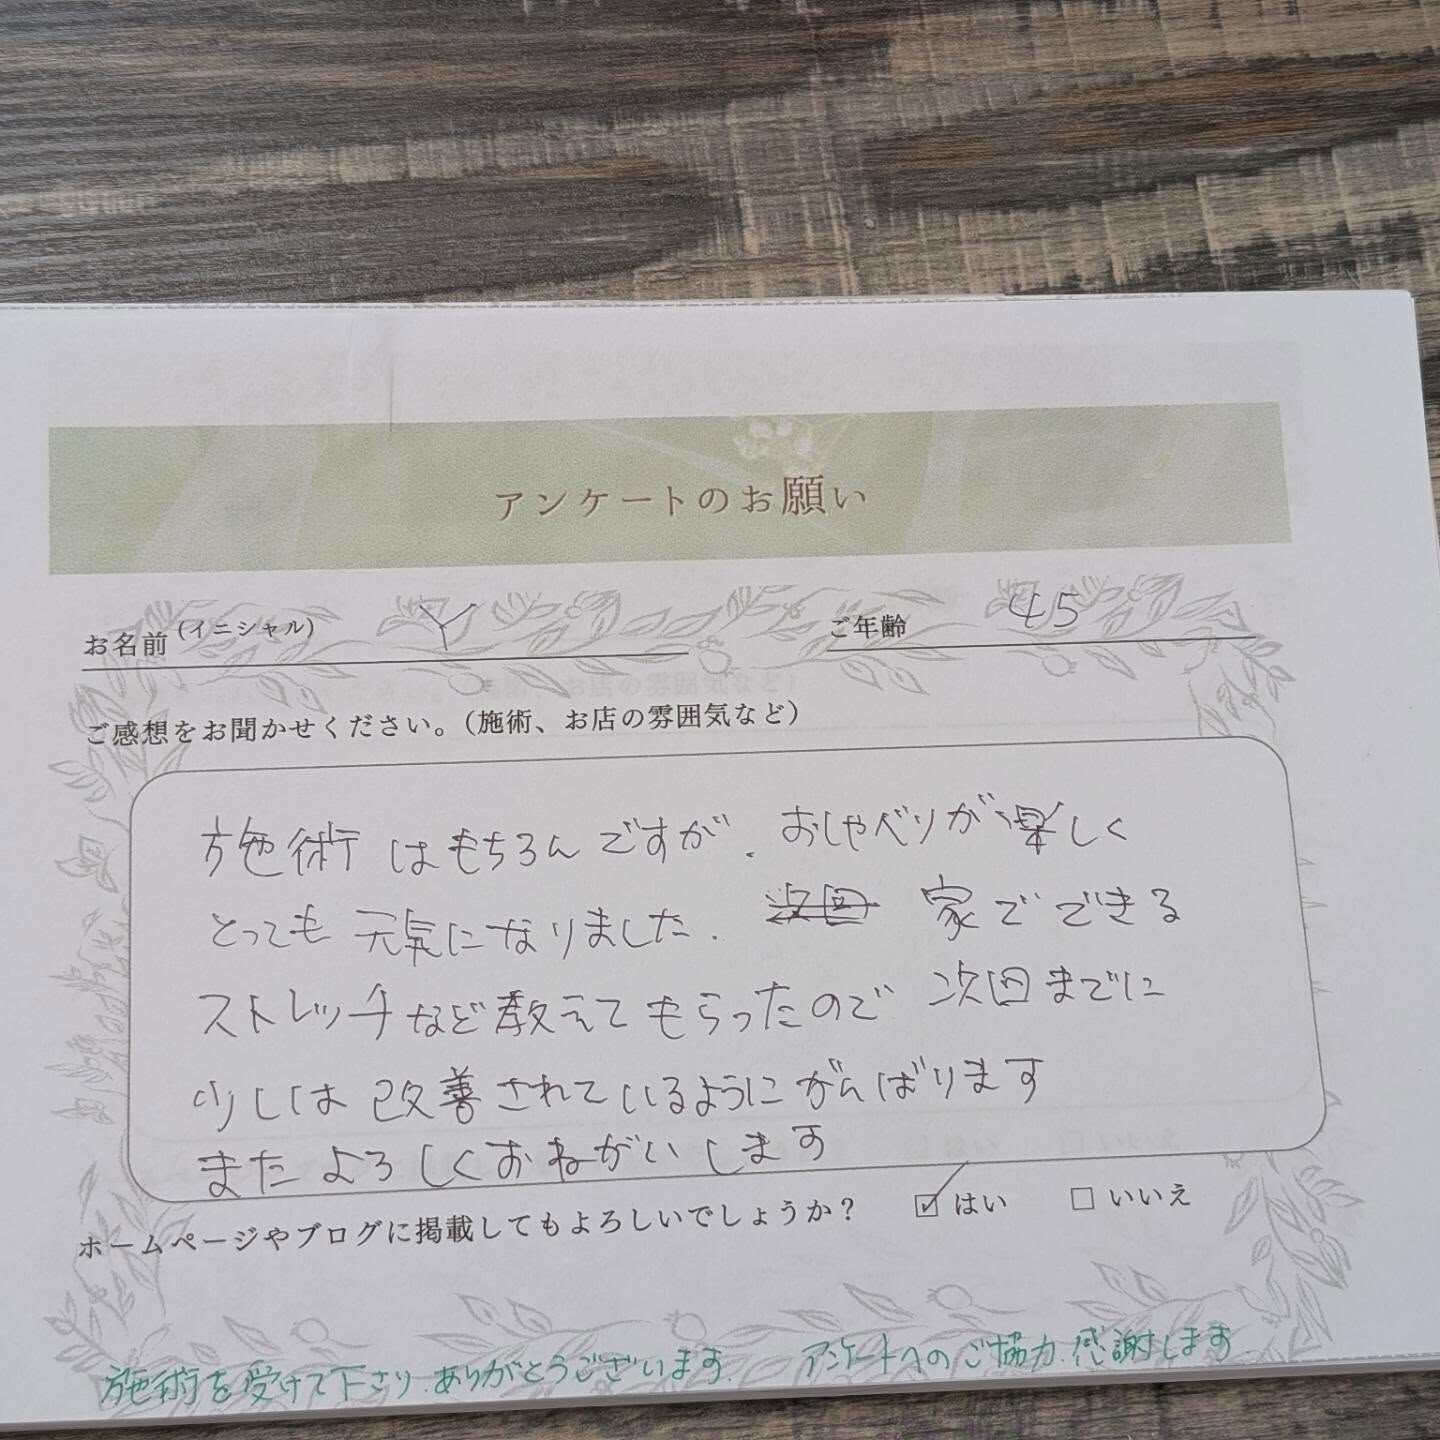 アンケートのお願い
お名前(イニシャル) Y ご年齢 45
ご感想をお聞かせください。(施術、お店の雰囲気など)
施術はもちろんですが、おしゃべりが楽しく
とっても元気になりました。次回 家でできる
ストレッチなど教えてもらったので 次回までに
少しは改善されているようにがんばります
またよろしくおねがいします
ホームページやブログに掲載してもよろしいでしょうか? ☑はい □いいえ
施術を受けて下さり、ありがとうございます。 アンケートへのご協力、感謝します。